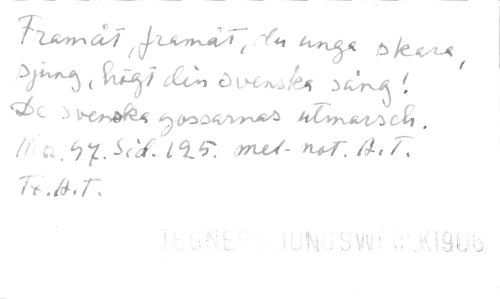 Framåt, framåt, du unga skara,
sjung, högt din svenska sång!
De svenska gossarnas utmarsch.
No. 97. Sid. 125. mel- not. A.T.
Tx. A.T.
TEGNER SJUNG SW FOLK 1906